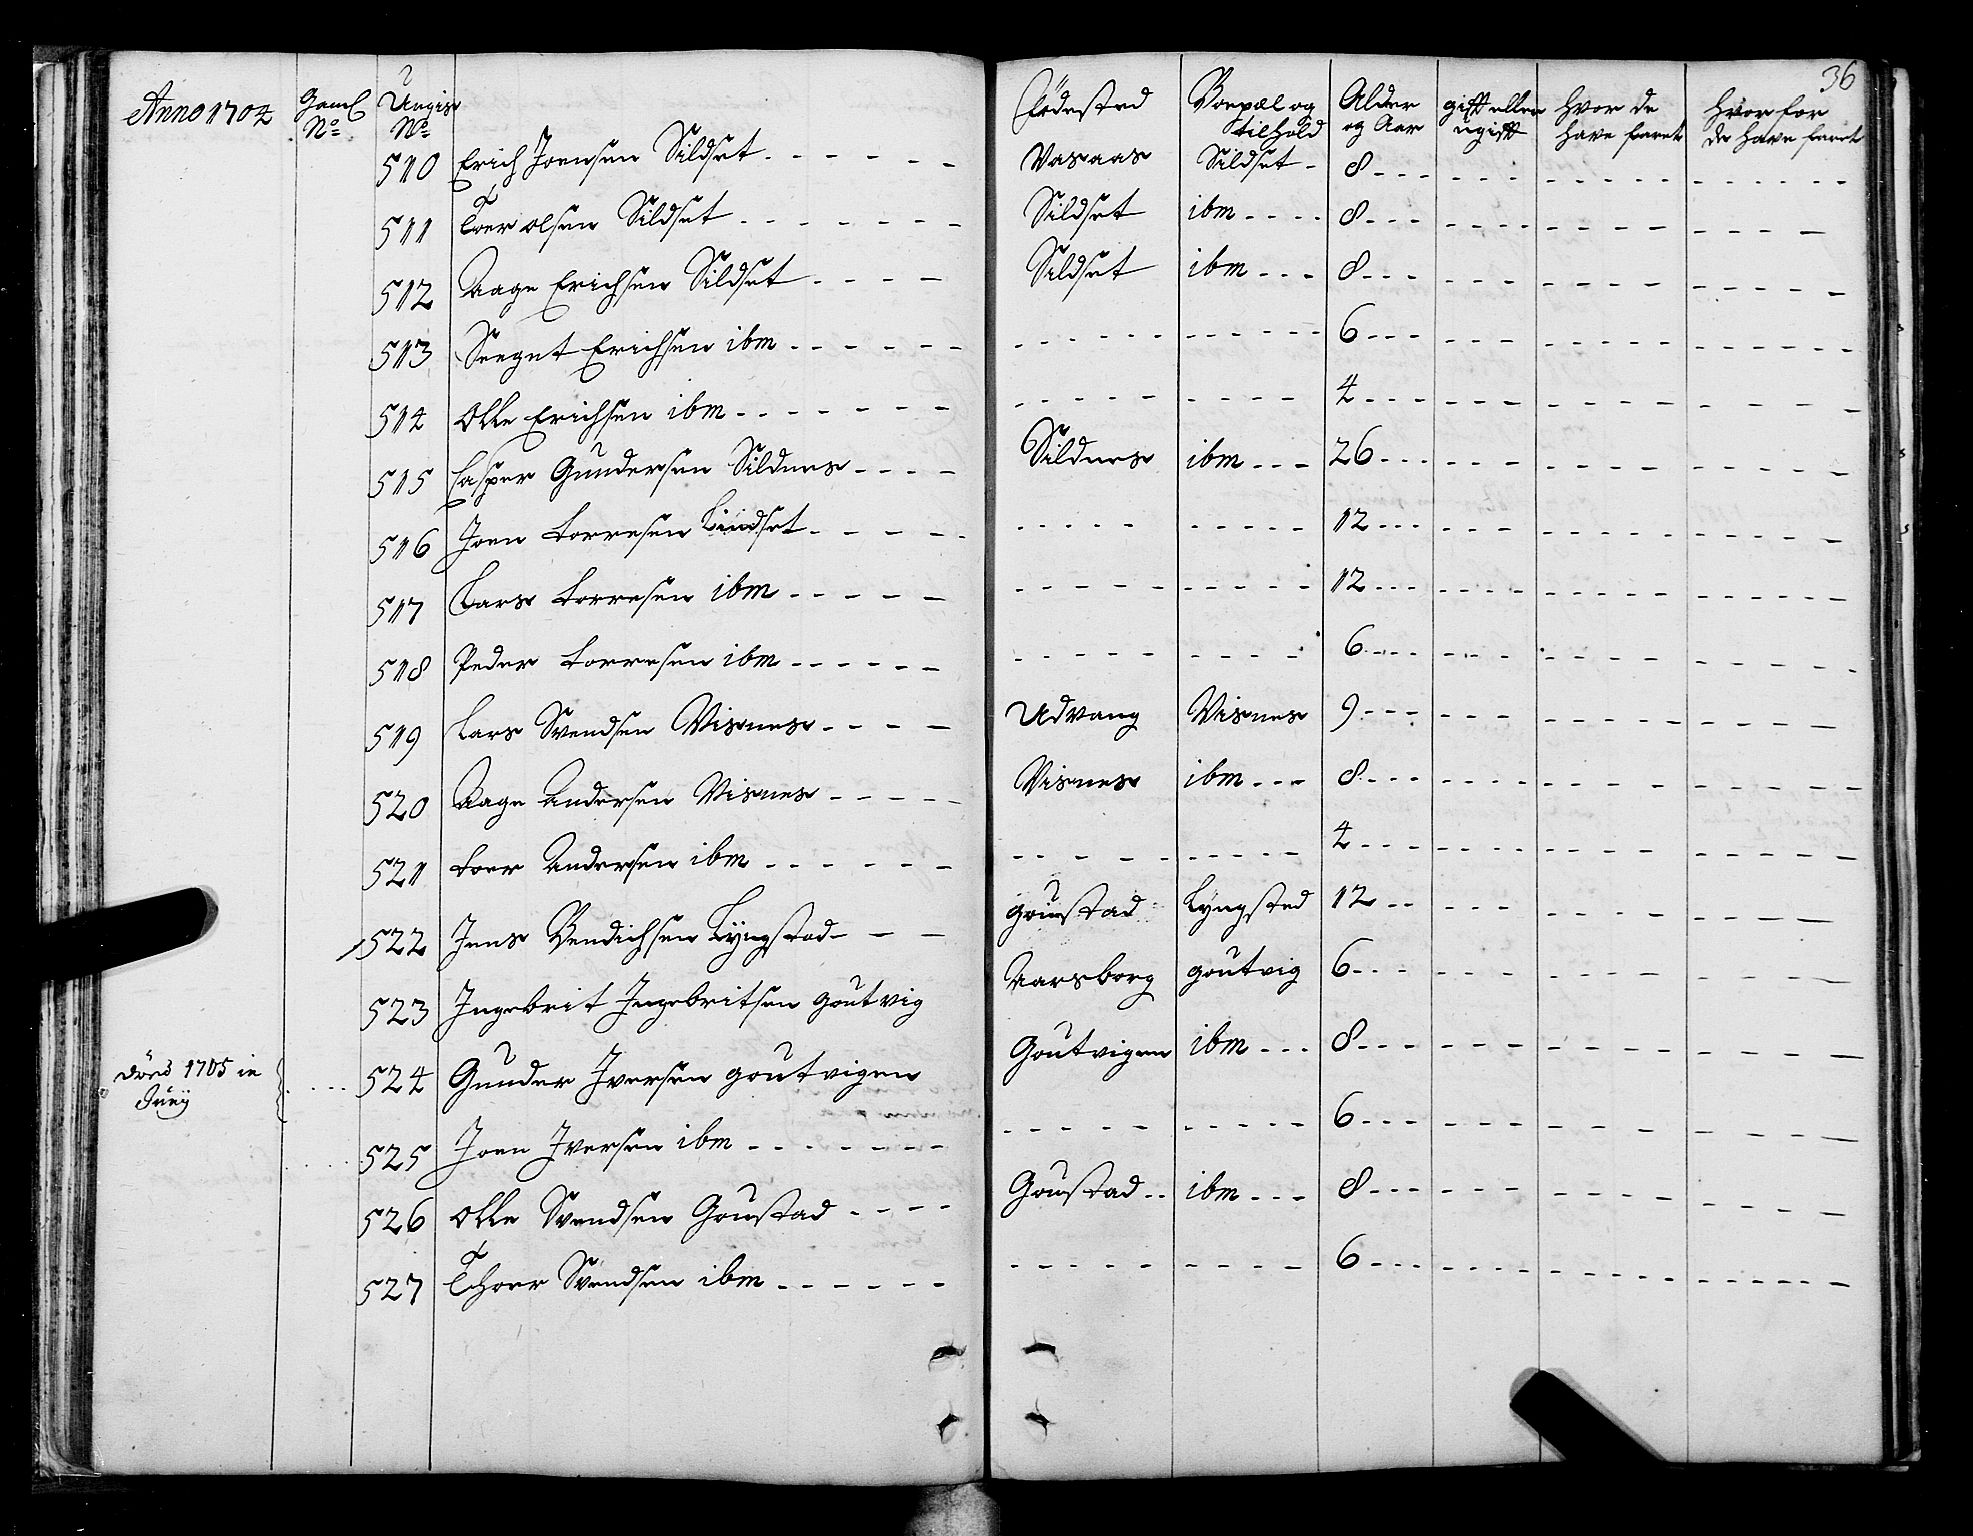 36
Anno 1704 Gaml No Ungis No Födested Boepæl og tilhold Alder og Aar gift eller ugift hvor de have faret hvor for de have faret
510 Erich Joensen Sildset - - - - - - Vasaas Sildset - 8 - - -
511 Toer olsen Sildset - - - - - - Sildset ibm - - - - 8 - - -
512 Aage Erichsen Sildset - - - - Sildset ibm - - - 8 - - -
513 Seegut Erichsen ibm - - - - - - 6 - - -
514 Olle Erichsen ibm - - - - - - - 4 - - -
515 Casper Gundersen Sildnes - - - - Sildnes ibm - - - 26 - - -
516 Joen Torresen Lindset - - - - - 12 - - -
517 Lars Torresen ibm - - - - - 12 - - -
518 Peder Torresen ibm - - - - - - 6 - - -
519 Lars Svendsen Visnes - - - - Udvang Visnes 9 - - -
520 Aage Andersen Visnes - - - - - Visnes ibm - - - 8 - - -
521 Toer Andersen ibm - - - - - - 4 - - -
522 Jens Bendichsen Lyngstad - - - goustad Lyngsted 12 - -
523 Ingebrit Ingebritsen goutvig Aarsborg goutvig 6 - - -
döed 1705 in Juny 524 Gunder Iversen goutvigen Goutvigen ibm - - - 8 - - -
525 Joen Iversen ibm - - - - - - - 6 - - -
526 Olle Svendsen Goustad - - - - Goustad - - ibm - - - 8 - - -
527 Thoer Svendsen ibm - - - - - - 6 - - -